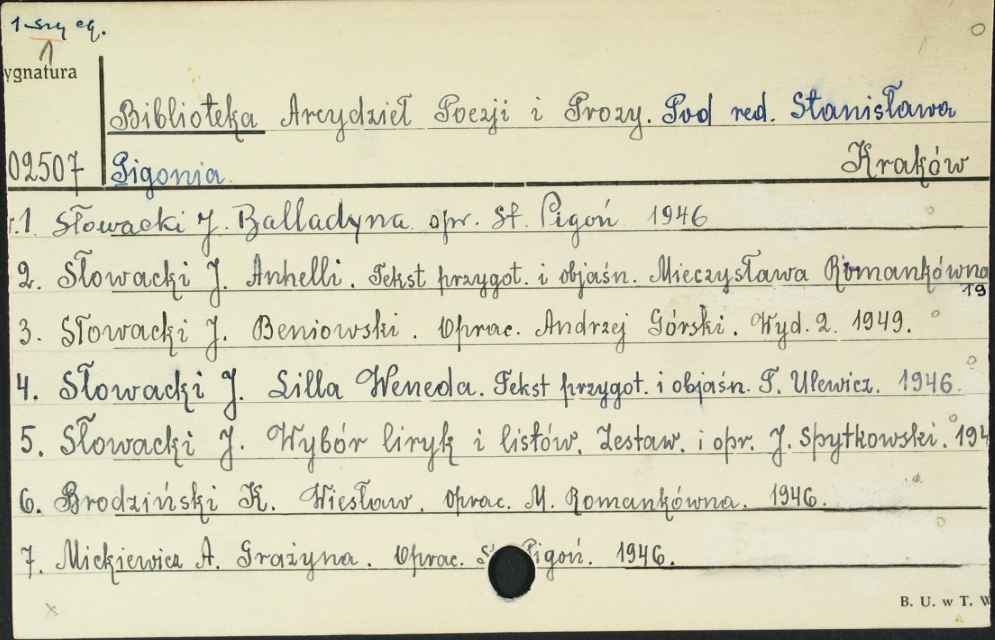 1-szy eg.
1
ygnatura
Biblioteka Arcydzieł Poezji i Prozy. Pod red. Stanisława
02507 Pigonia. Kraków
r.1 Słowacki J. Balladyna opr. St. Pigoń 1946
2. Słowacki J. Anhelli. Tekst przygot. i objaśn. Mieczysława Romankówna
19
3. Słowacki J. Beniowski. Oprac. Andrzej Górski. Wyd. 2. 1949.
4. Słowacki J. Lilla Weneda. Tekst przygot. i objaśn. T. Ulewicz. 1946.
5. Słowacki J. Wybór liryk i listów. Zestaw. i opr. J. Spytkowski. 194
6. Brodziński K. Wiesław. Oprac. M. Romankówna. 1946.
7. Mickiewicz A. Grażyna. Oprac. S Pigoń. 1946.
B. U. w T. W